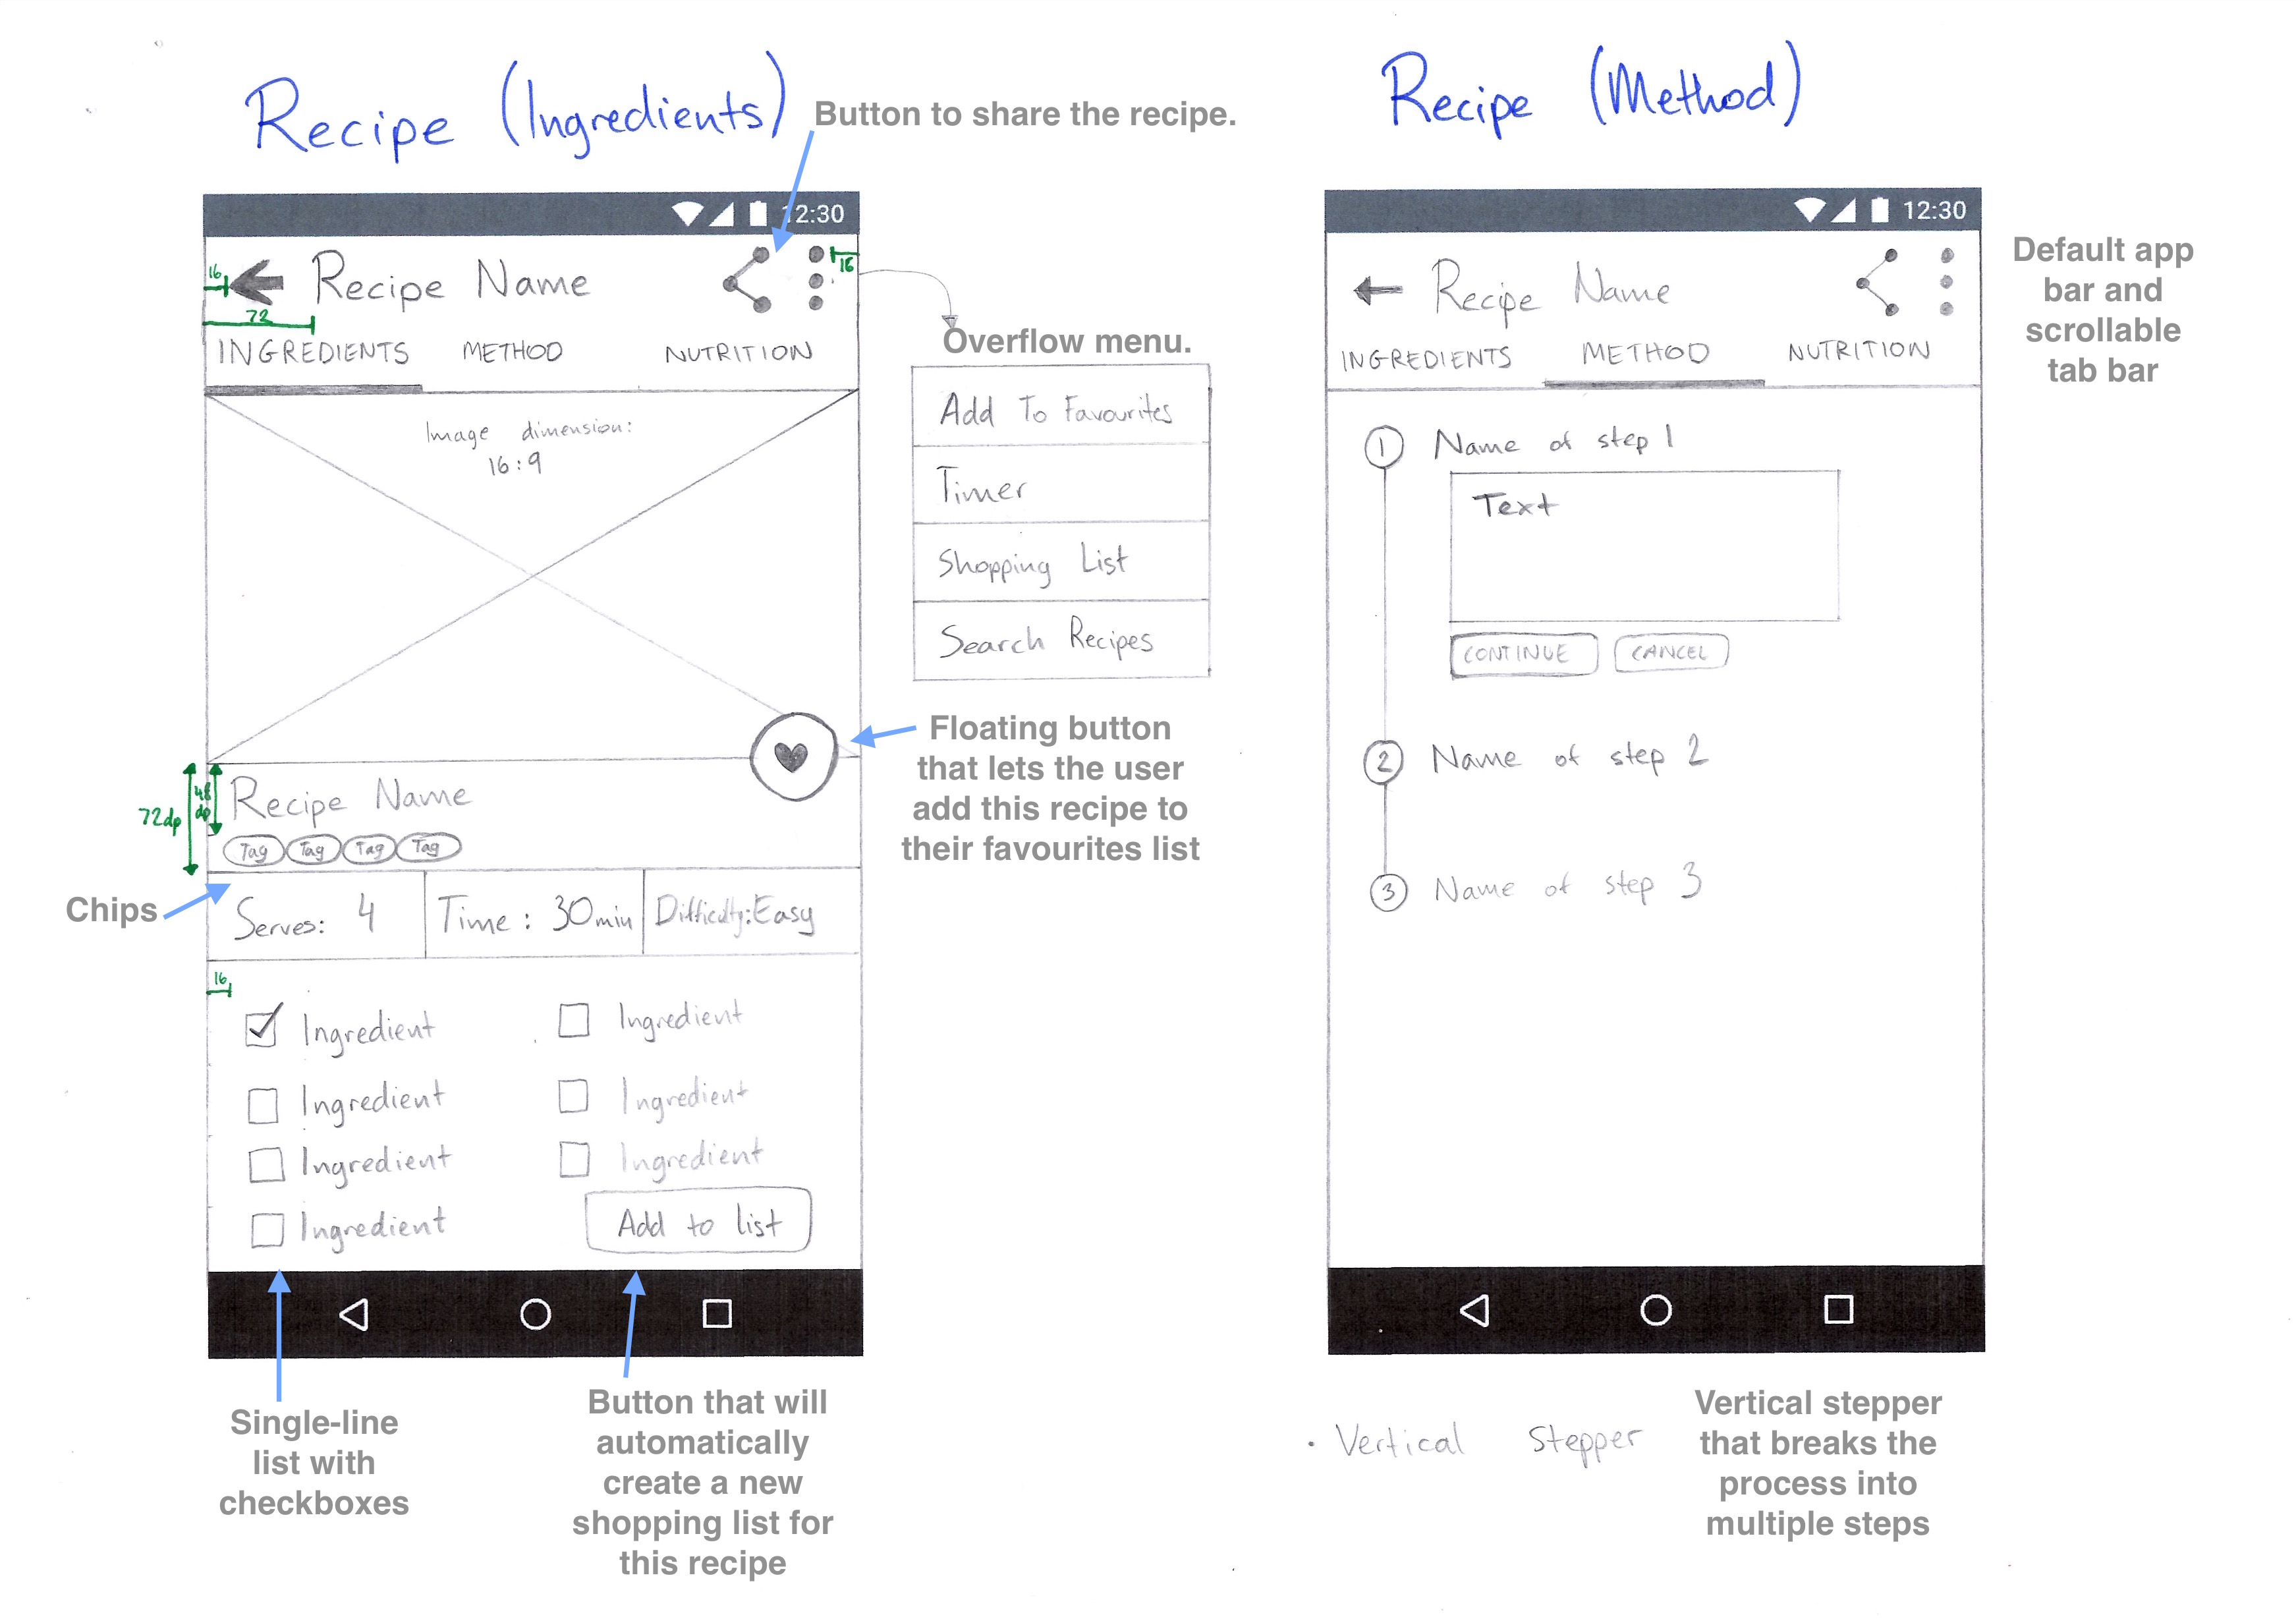 Recipe (Ingredients)
Button to share the recipe.
12:30
16
Recipe Name
16
72
INGREDIENTS METHOD NUTRITION
Image dimension:
16:9
Overflow menu.
Add To Favourites
Timer
Shopping List
Search Recipes
Floating button
that lets the user
add this recipe to
their favourites list
72dp
48
dp
Recipe Name
Tag Tag Tag Tag
Chips
Serves: 4 Time: 30min Difficulty: Easy
16
Ingredient Ingredient
Ingredient Ingredient
Ingredient Ingredient
Ingredient Add to list
Single-line
list with
checkboxes
Button that will
automatically
create a new
shopping list for
this recipe
Recipe (Method)
12:30
Recipe Name
INGREDIENTS METHOD NUTRITION
Default app
bar and
scrollable
tab bar
1 Name of step 1
Text
CONTINUE CANCEL
2 Name of step 2
3 Name of step 3
· Vertical Stepper
Vertical stepper
that breaks the
process into
multiple steps